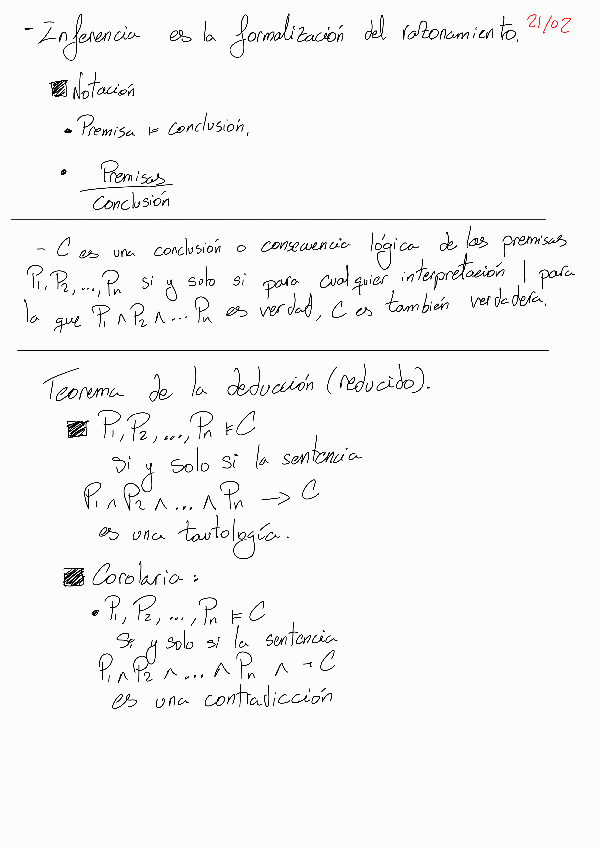 - Inferencia es la formalización del razonamiento. 21/02
Notación
• Premisa ⊨ conclusión.
• Premisas
Conclusión
- C es una conclusión o consecuencia lógica de las premisas
P₁, P₂, ..., Pn si y solo si para cualquier interpretación I para
la que P₁ ∧ P₂ ∧ ... Pn es verdad, C es también verdadera.
Teorema de la deducción (reducido).
P₁, P₂, ..., Pn ⊨ C
si y solo si la sentencia
P₁ ∧ P₂ ∧ ... ∧ Pn → C
es una tautología.
Corolaria:
• P₁, P₂, ..., Pn ⊨ C
Si y solo si la sentencia
P₁ ∧ P₂ ∧ ... ∧ Pn ∧ ¬C
es una contradicción